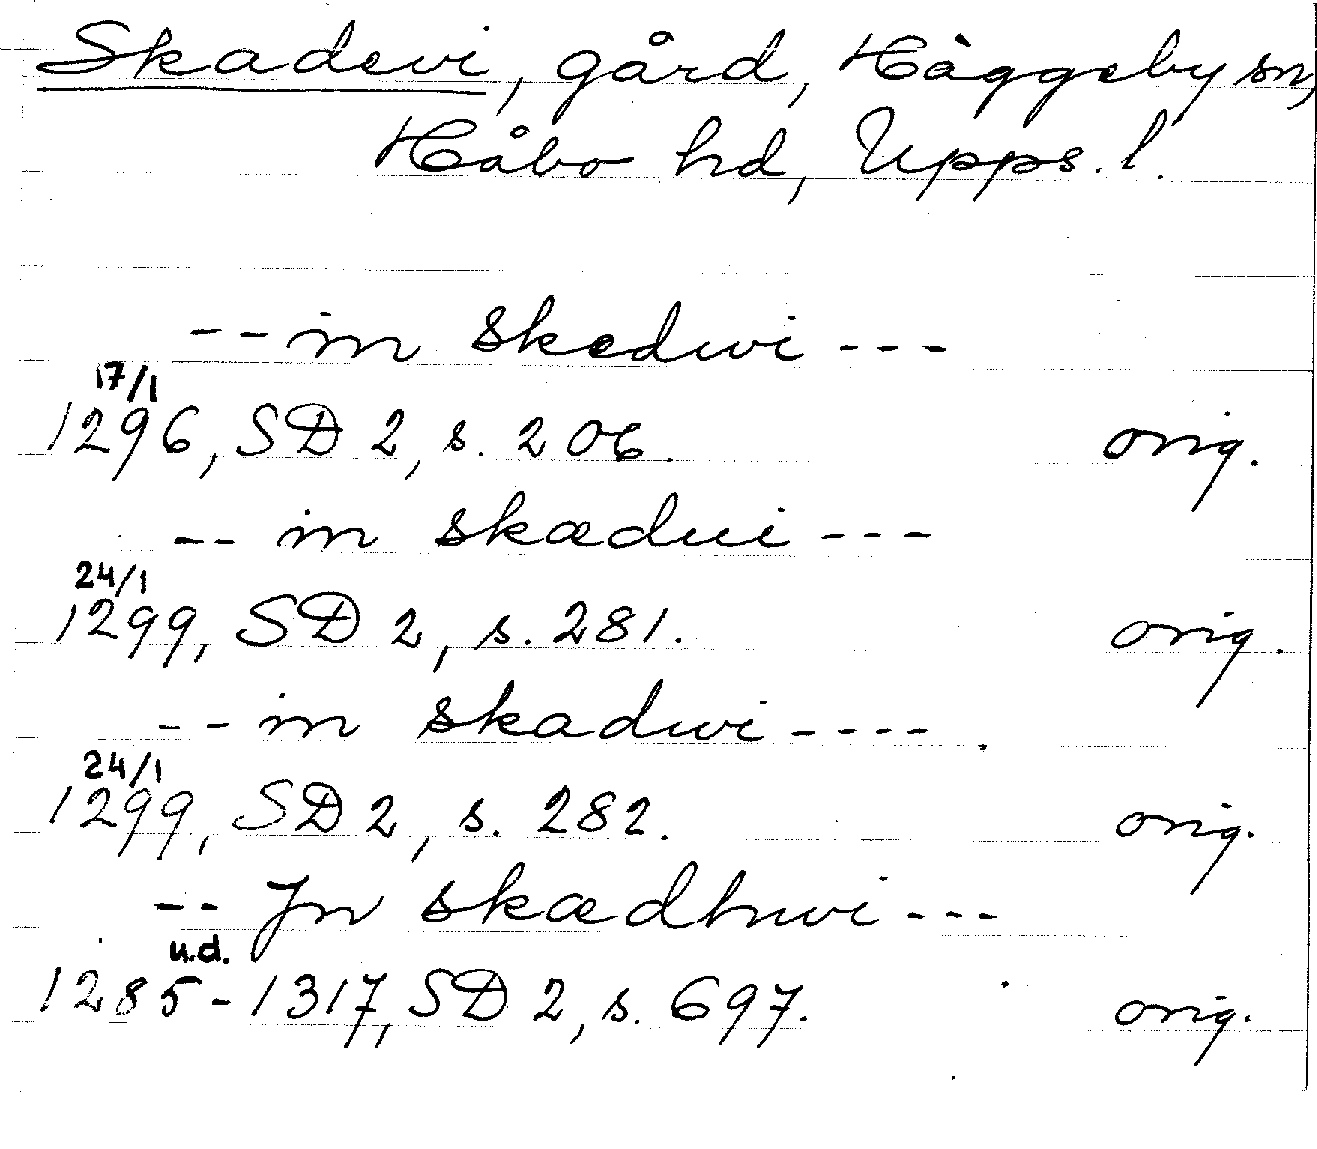 Skadevi, gård, Häggeby sn,
Håbo hd, Upps. l.
-- in skedwi ---
17/1
1296, SD 2, s. 206. orig.
-- in skædui ---
24/1
1299, SD 2, s. 281. orig.
-- in skadwi ----.
24/1
1299, SD 2, s. 282. orig.
-- Jn skædhwi ---
u.d.
1285-1317, SD 2, s. 697. orig.